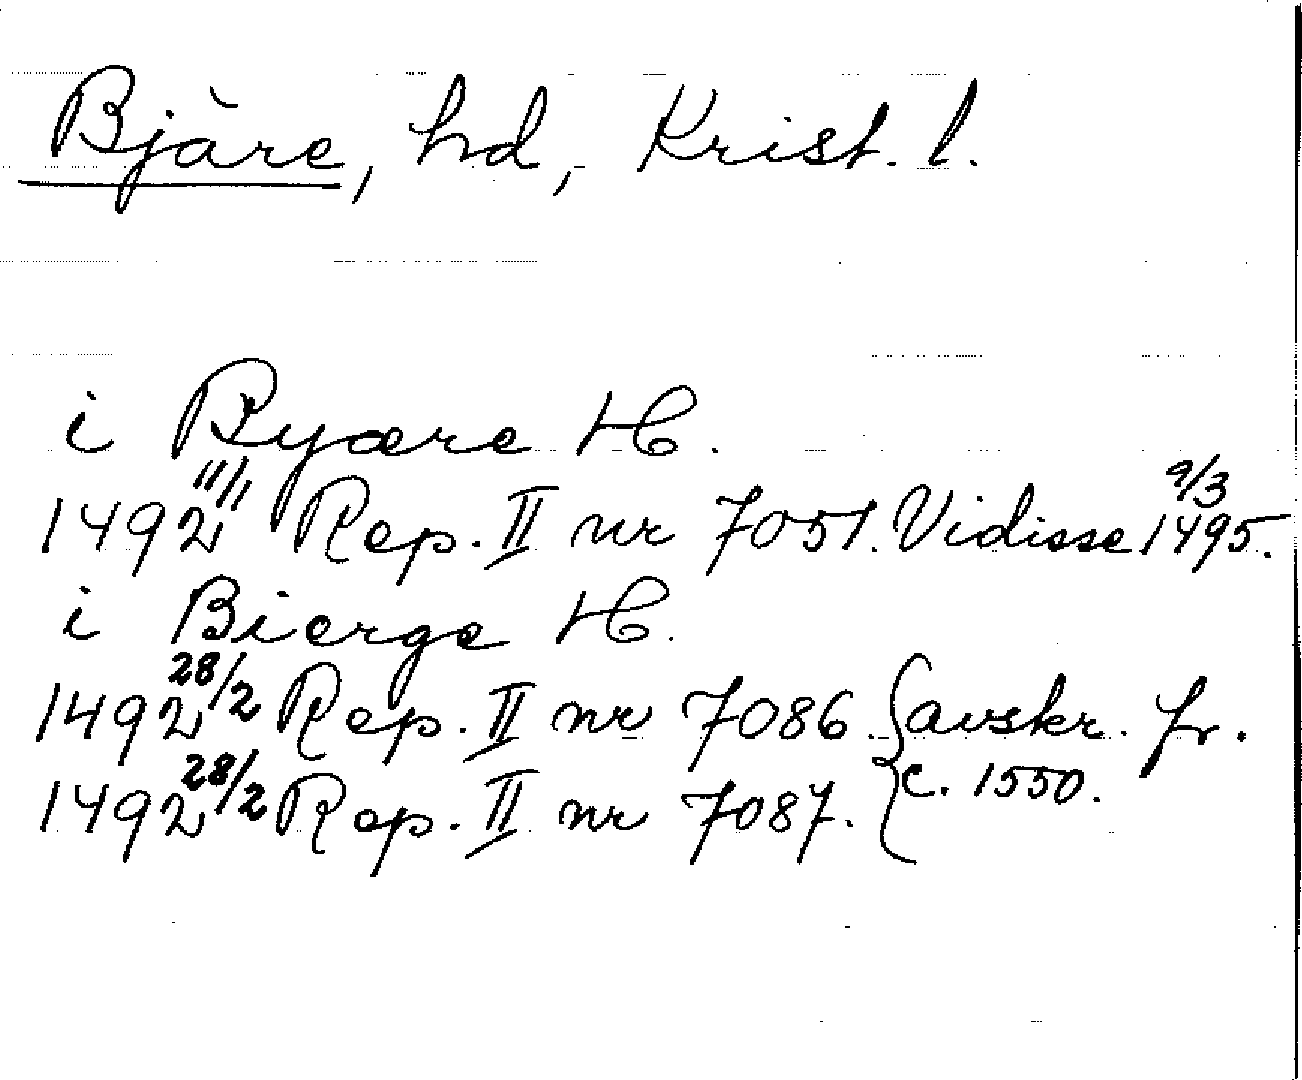 Bjäre, hd, Krist. l.
i Byære H.
1492 11/1 Rep. II nr 7051. Vidisse 9/3 1495.
i Bierge H.
1492 28/2 Rep. II nr 7086. { avskr. fr.
1492 28/2 Rep. II nr 7087. { c. 1550.